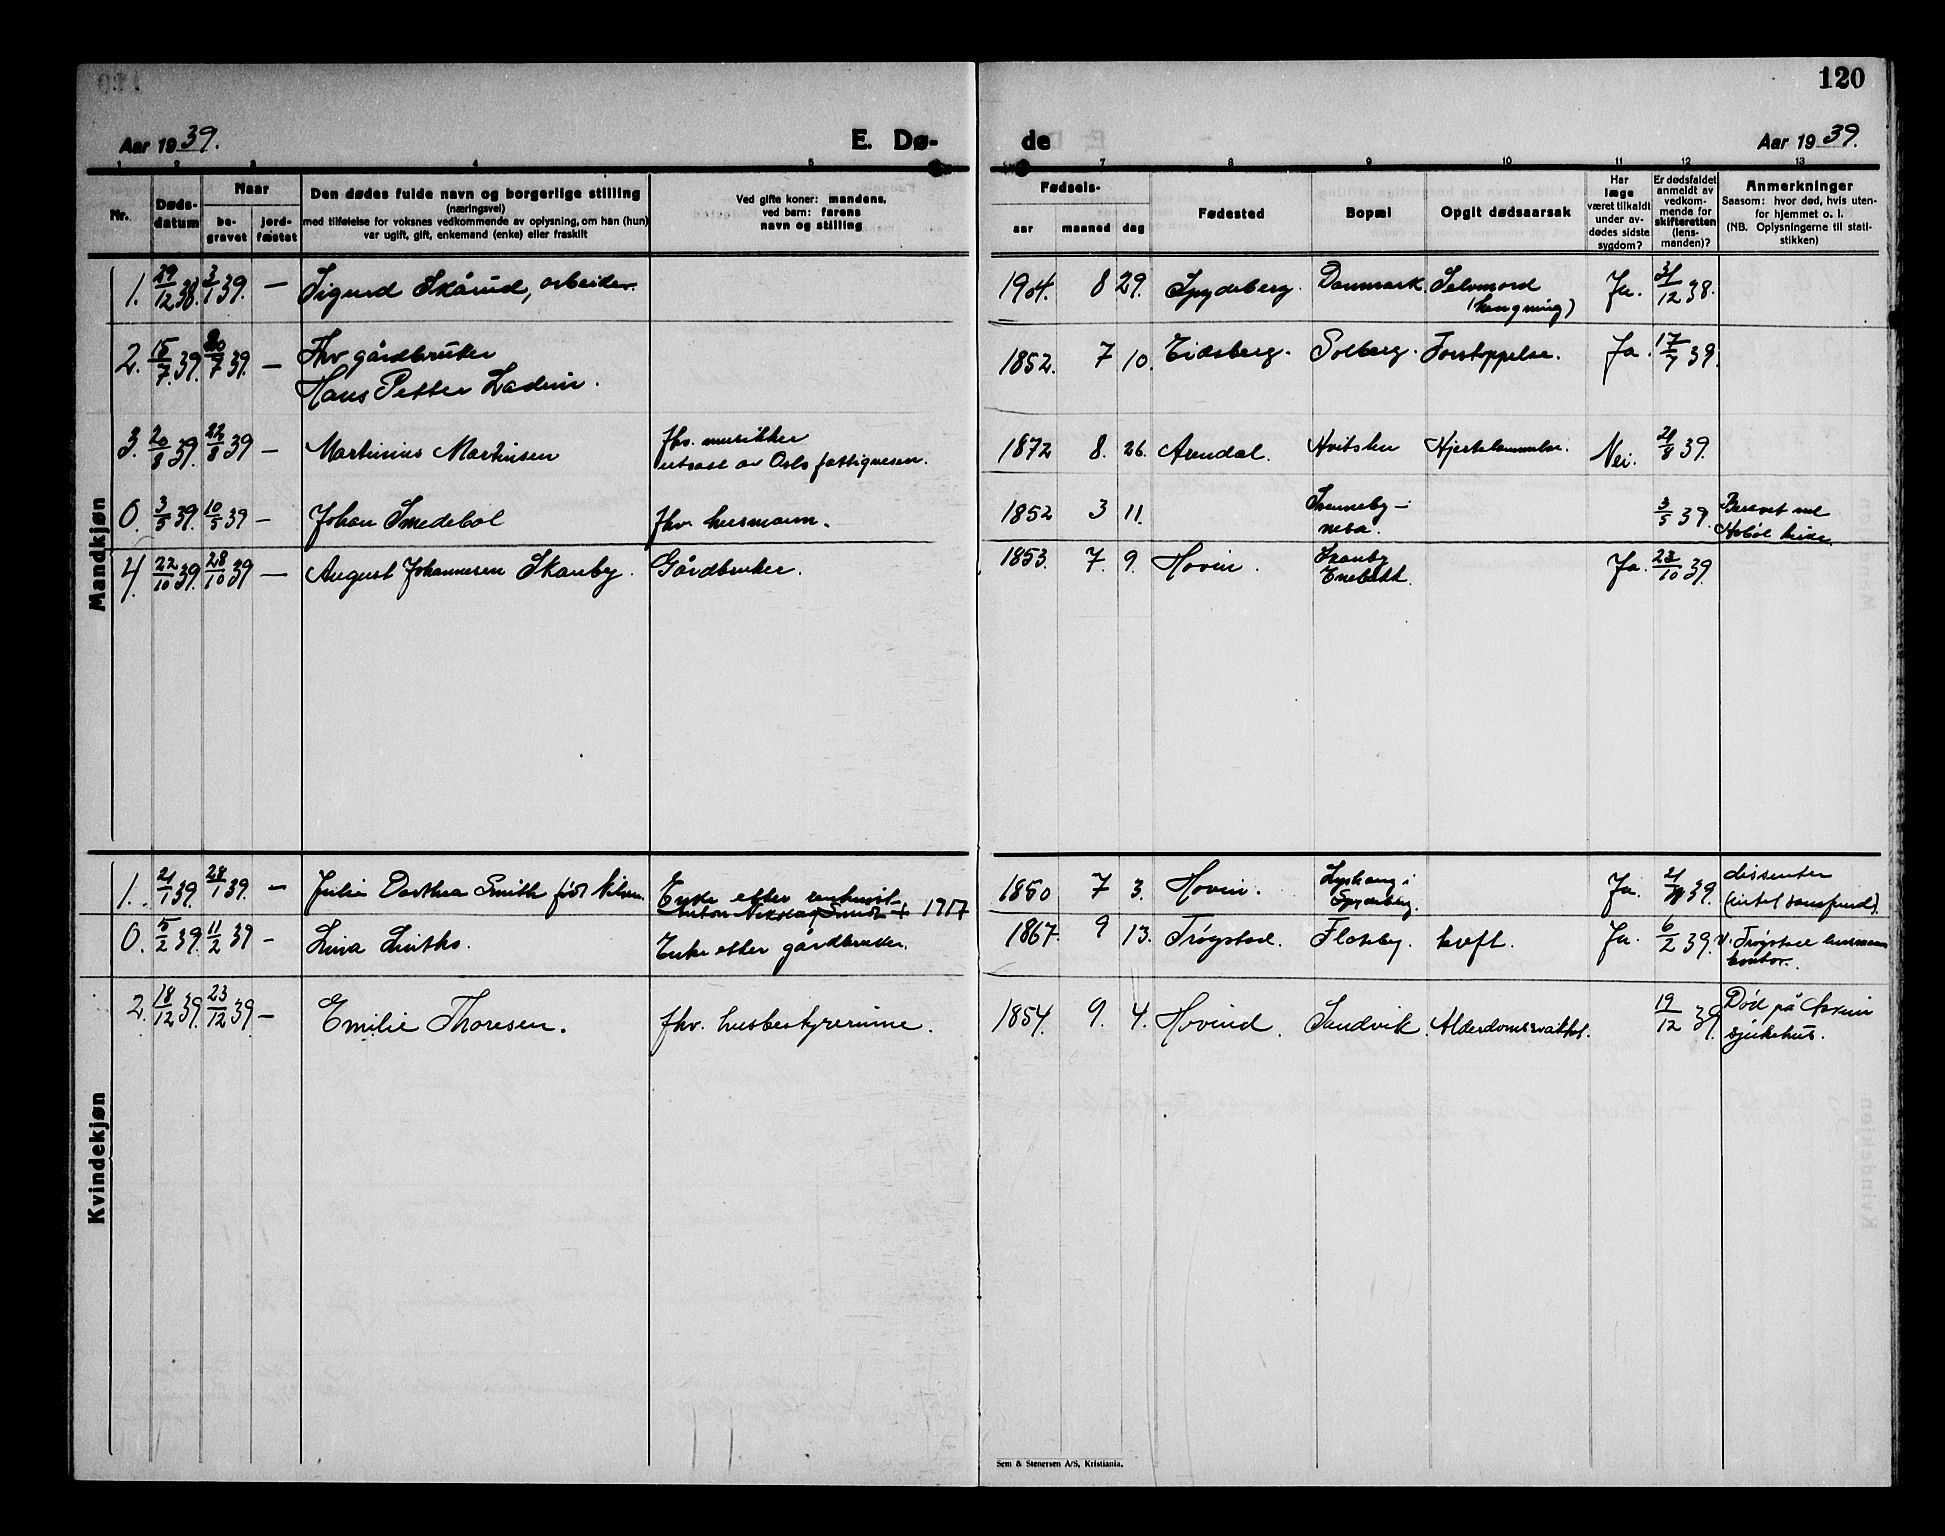 120
Aar 1939.
E. Dø-
de
Aar 1939.
1 2 3 4 5
7 8 9 10 11 12 13
Nr.
Døds-
datum
Naar
be-
gravet
jord-
fæstet
Den dødes fulde navn og borgerlige stilling
(næringsvei)
med tilføielse for voksnes vedkommende av oplysning, om han (hun)
var ugift, gift, enkemand (enke) eller fraskilt
Ved gifte koner: mandens,
ved barn: farens
navn og stilling
Fødsels-
aar maaned dag
Fødested
Bopæl
Opgit dødsaarsak
Har
læge
været tilkaldt
under av-
dødes sidste
sygdom?
Er dødsfaldet
anmeldt av
vedkom-
mende for
skifteretten
(lens-
manden)?
Anmerkninger
Saasom: hvor død, hvis uten-
for hjemmet o. l.
(NB. Oplysningerne til stati-
stikken)
Mandkjøn
1. 29/12 38. 3/1 39. — Sigurd Skårud, arbeider. 1904. 8 29. Spydeberg. Danmark. Selvmord Ja. 31/12 38.
(hengning)
2. 15/7 39. 20/7 39. — Fhv gårdbruker
Hans Petter Ladim. 1852. 7 10. Eidsberg. Solberg. Forstoppelse. Ja. 17/7 39.
3. 20/8 39. 22/8 39 — Martinius Martinsen fhv. musikker
utsatt av Oslo fattigvesen. 1872 8. 26. Arendal. Hvitsten Hjertelammelse. Nei. 21/8 39.
0. 3/5 39. 10/5 39 — Johan Smedebøl fhv. husmann. 1852 3 11. 3/5 39. Begravet ved
Hobøl kirke.
4. 22/10 39. 28/10 39 — August Johannesen Skanby. Gårdbruker. 1853. 7. 9. Hovin. Skanby
Enebakk. Ja. 23/10 39.
Kvindekjøn
1. 21/1 39. 28/1 39. — Julie Dorthea Smith født Nilsen. Enke etter
Anton Nikolay Smith + 1917 1850 7 3. Hovin. i
Spydeberg. Ja. 39. dissenter
0. 5/2 39. 11/2 39 — Lina Enke etter gårdbruker. 1867. 9 13. Trøgstad. kreft. Ja. 6/2 39. Trøgstad
2. 18/12 39. 23/12 39 — Emilie Thoresen. fhv. husbestyrerinne. 1854. 9. 4. Hovind. Sandvik. Alderdomssvakhet. 19/12 39. Død på Hovin
sjukehus.
Sem & Stenersen A/S, Kristiania.